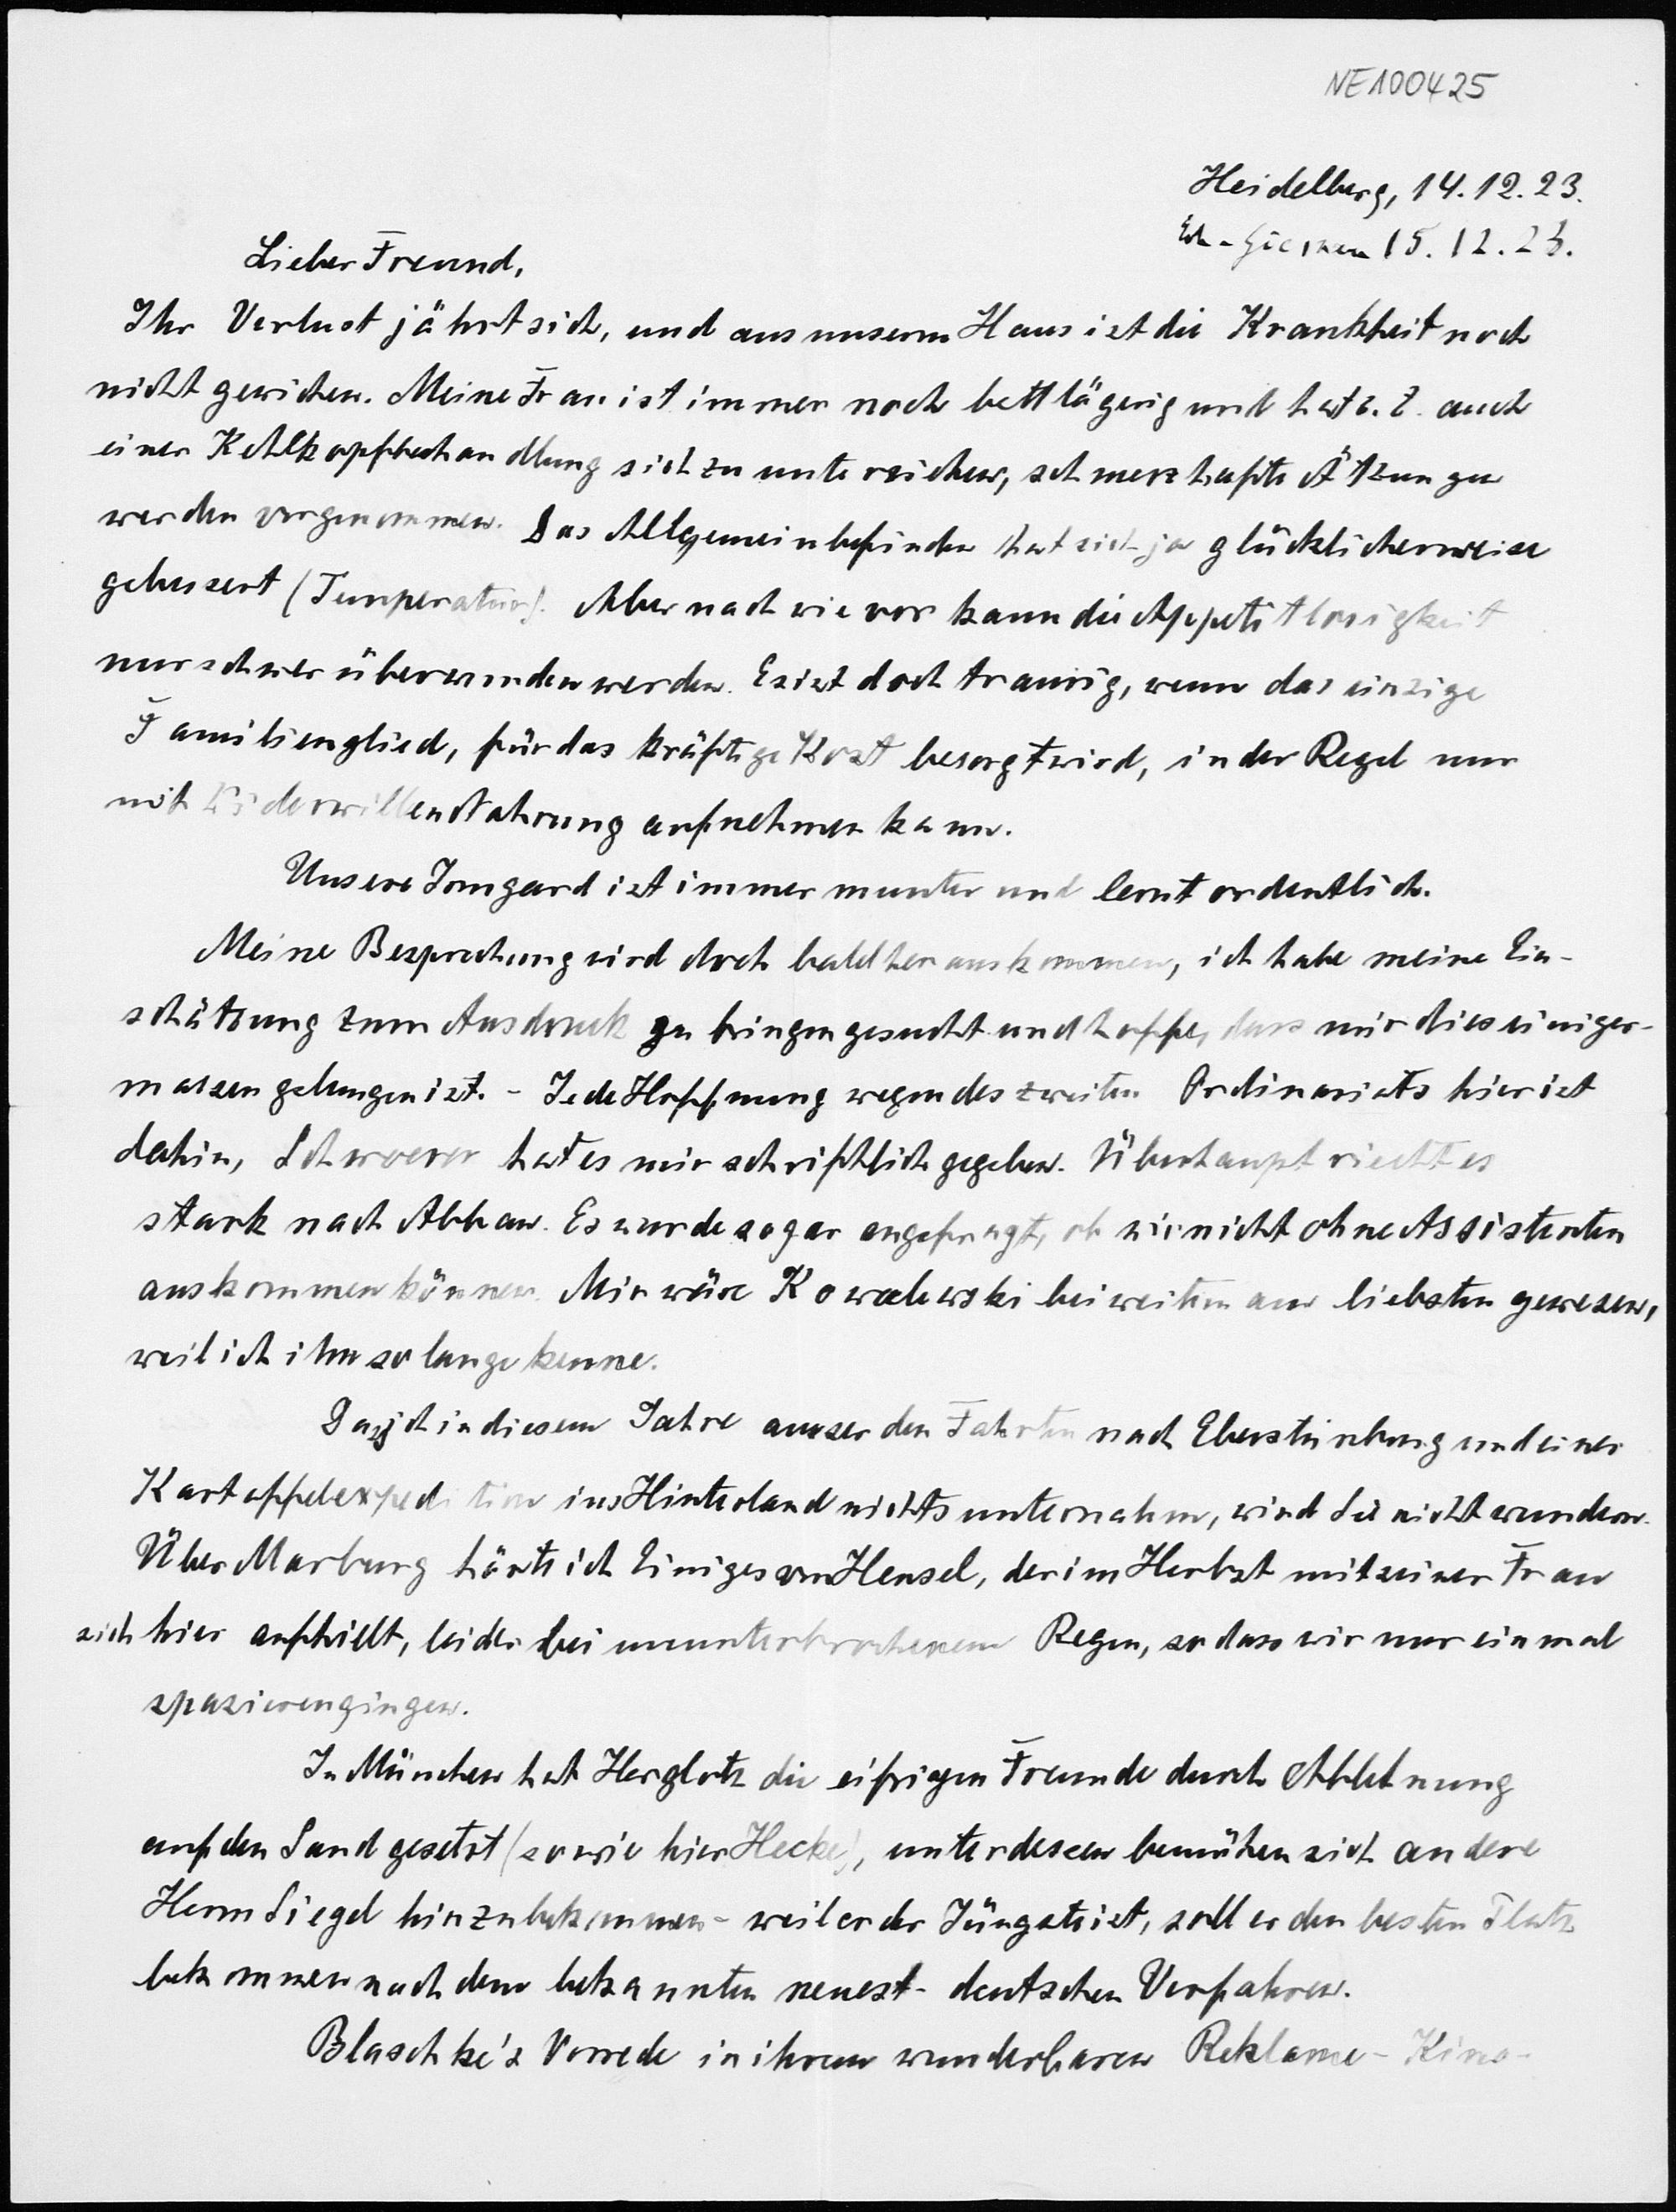 NE100425
Heidelberg, 14.12.23.
Erh. Giessen 15.12.23.
Lieber Freund,
Ihr Verlust jährt sich, und aus unserm Haus ist die Krankheit noch
nicht gewichen. Meine Frau ist immer noch bettlägerig und hat z. Z. auch
einer Kehlkopfbehandlung sich zu unterziehen, schmerzhafte Ätzungen
werden vorgenommen. Das Allgemeinbefinden hat sich ja glücklicherweise
gebessert (Temperatur). Aber nach wie vor kann die Appetitlosigkeit
nur schwer überwunden werden. Es ist doch traurig, wenn das einzige
Familienglied, für das kräftige Kost besorgt wird, in der Regel nur
mit Widerwillen Nahrung aufnehmen kann.
Unsere Irmgard ist immer munter und lernt ordentlich.
Meine Besprechung wird doch bald herauskommen, ich habe meine Ein-
schätzung zum Ausdruck zu bringen gesucht und hoffe, dass mir dies einiger-
massen gelungen ist. - Jede Hoffnung wegen des zweiten Ordinariats hier ist
dahin, Schwoerer hat es mir schriftlich gegeben. Überhaupt riecht es
stark nach Abbau. Es wurde sogar angefragt, ob wir nicht ohne Assistenten
auskommen können. Mir wäre Kowalewski bei weitem am liebsten gewesen,
weil ich ihn so lange kenne.
Dass ich in diesem Jahre ausser den Fahrten nach Ebersteinburg und einer
Kartoffelexpedition ins Hinterland nichts unternahm, wird Sie nicht wundern.
Über Marburg hörte ich Einiges von Hensel, der im Herbst mit seiner Frau
sich hier aufhielt, leider bei ununterbrochenem Regen, so dass wir nur einmal
spazierengingen.
In München hat Herglotz die eifrigen Freunde durch Ablehnung
auf den Sand gesetzt (so wie hier Hecke), unterdessen bemühen sich andere
Herrn Siegel hinzubekommen - weil er der Jüngste ist, soll er den besten Platz
bekommen nach dem bekannten neuest-deutschen Verfahren.
Blaschke's Vorrede in ihrem wunderbaren Reklame-Kino-